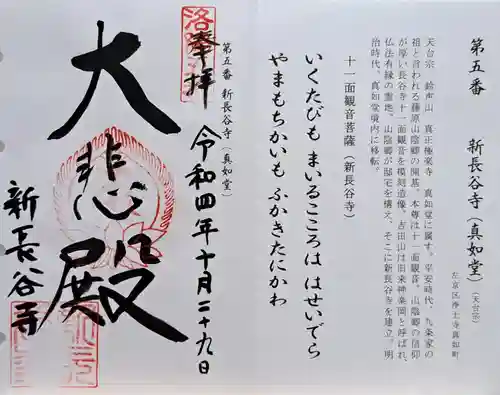 第五番　新長谷寺（真如堂）
（天台宗）
左京区浄土寺真如町
天台宗　鈴声山　真正極楽寺　真如堂に属す。平安時代、九条家の
祖と言われる藤原山陰卿の開基。本尊は十一面観音。山陰卿の信仰
が厚い長谷寺十一面観音を模刻造像。吉田山は旧来神楽岡と呼ばれ、
仏法有縁の霊地。山陰卿が邸宅を構え、そこに新長谷寺を建立。明
治時代、真如堂境内に移転。
十一面観音菩薩（新長谷寺）
いくたびも まいるこころは はせいでら
やまもちかいも ふかきたにかわ
第五番 新長谷寺（真如堂）
奉拝
令和四年十月二十九日
大悲殿
新長谷寺